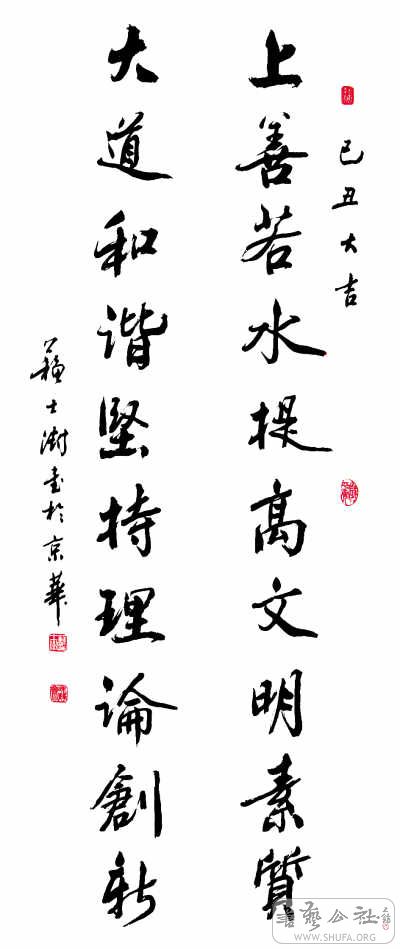 己丑大吉
上善若水提高文明素質
大道和諧堅持理論創新
蘇士澍書於京華
書藝公社
WWW.SHUFA.ORG